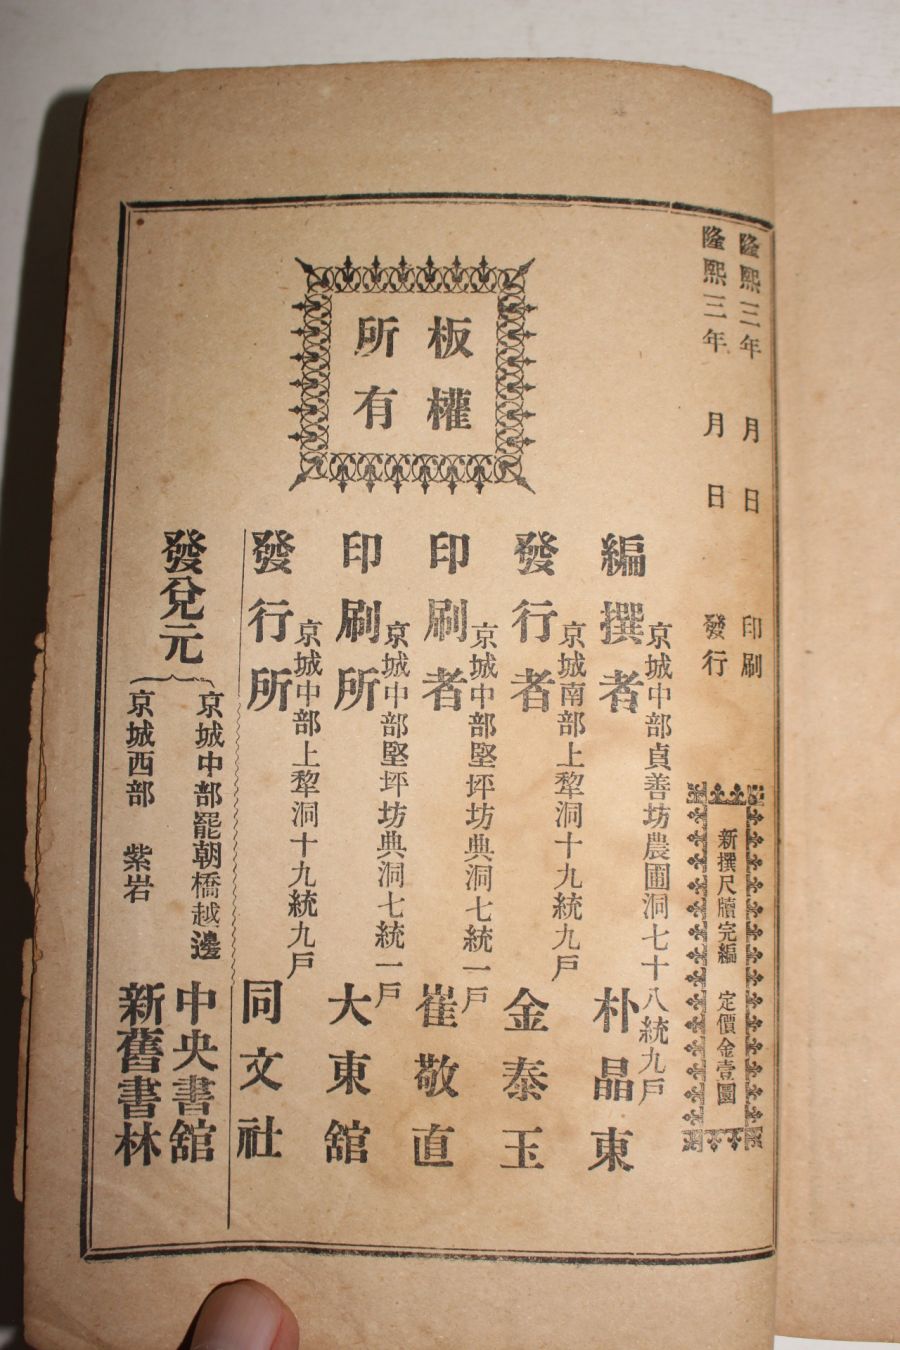 隆熙三年 月 日 印刷
隆熙三年 月 日 發行
新撰尺牘完編 定價金壹圜
京城中部貞善坊農圃洞七十八統九戶
編撰者 朴晶東
京城南部上犂洞十九統九戶
發行者 金泰玉
京城中部堅坪坊典洞七統一戶
印刷者 崔敬直
京城中部堅坪坊典洞七統一戶
印刷所 大東舘
京城中部上犂洞十九統九戶
發行所 同文社
發兌元
京城中部罷朝橋越邊 中央書舘
京城西部 紫岩 新舊書林
板權
所有